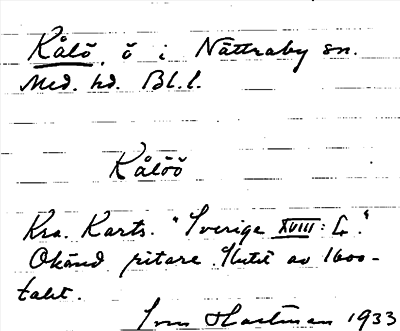 Kålö, ö i Nättraby sn.
Med. hd. Bl. l.
Kålöö
Kra. Karts. "Sverige XVIII: 4."
Okänd ritare. Slutet av 1600-
talet.
Hartman 1933